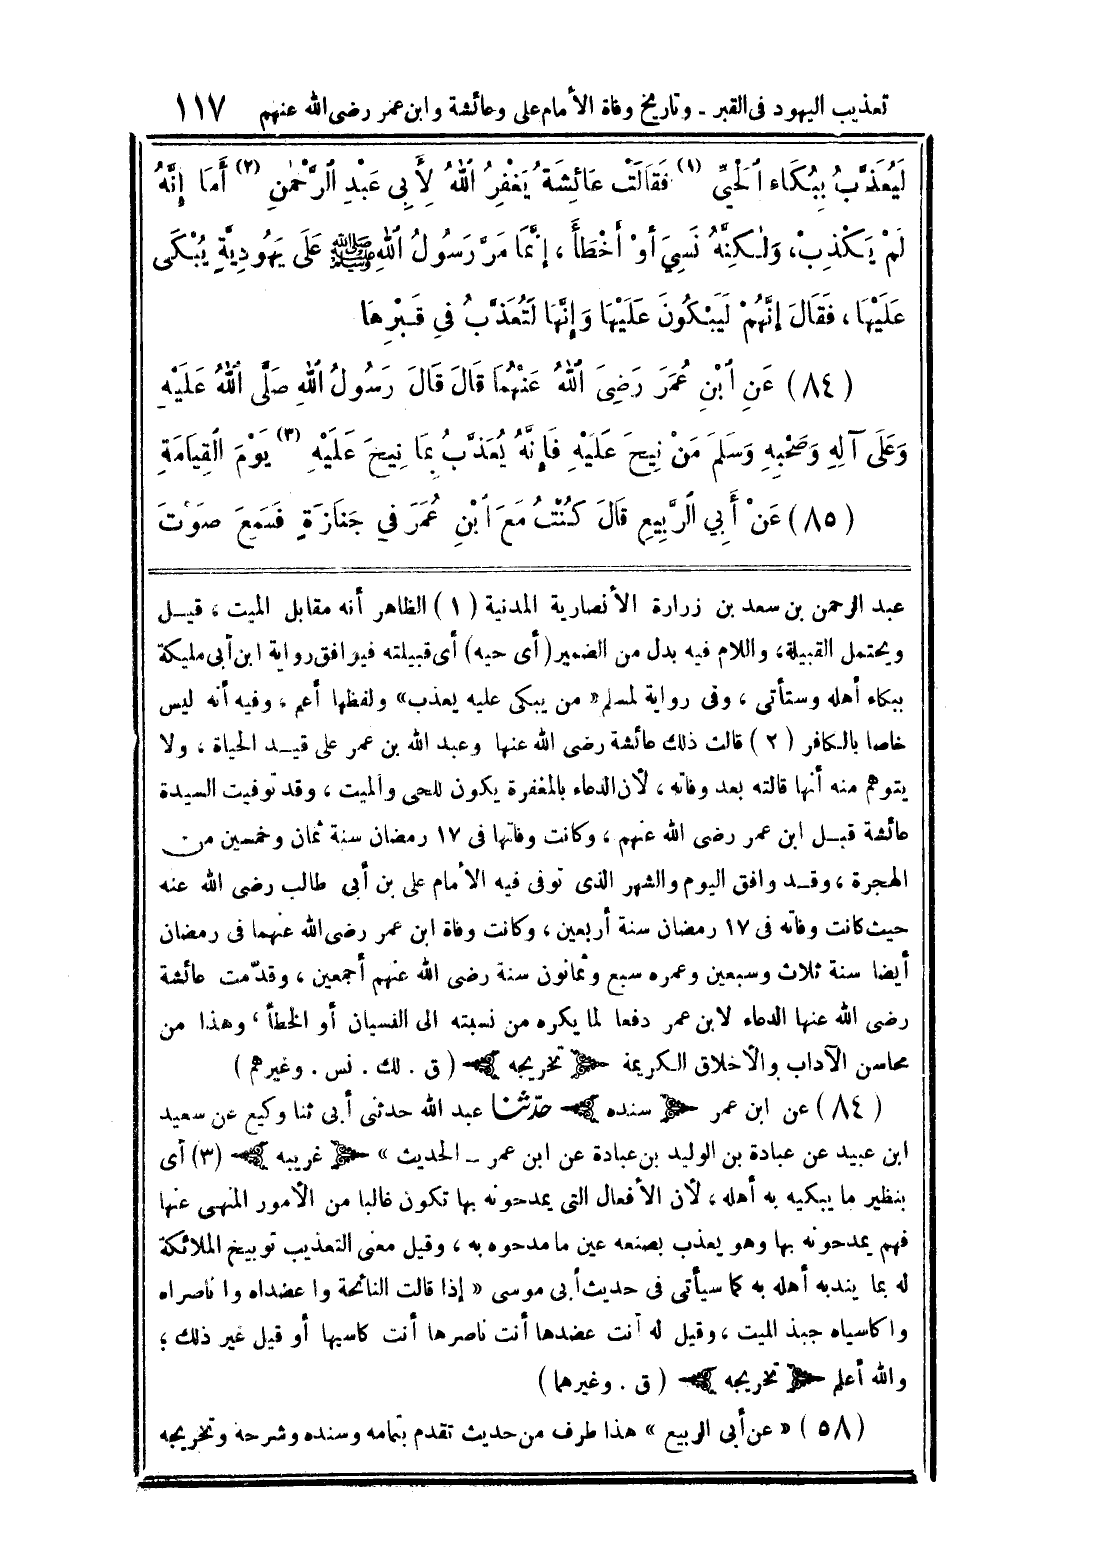 تعذيب اليهود فى القبر ـ وتاريخ وفاة الأمام على وعائشة وابن عمر رضى الله عنهم ١١٧
لَيُعَذَّبُ بِبُكَاءِ ٱلْحَيِّ (١) فَقَالَتْ عَائِشَةُ يَغْفِرُ ٱللهُ لِأَبِى عَبْدِ ٱلرَّحْمٰنِ (٢) أَمَا إِنَّهُ
لَمْ يَكْذِبْ، وَلٰكِنَّهُ نَسِيَ أَوْ أَخْطَأَ ، إِنَّمَا مَرَّ رَسُولُ ٱللهِ ﷺ عَلَى يَهُودِيَّةٍ يُبْكَى
عَلَيْهَا ، فَقَالَ إِنَّهُمْ لَيَبْكُونَ عَلَيْهَا وَإِنَّهَا لَتُعَذَّبُ فِي قَبْرِهَا
(٨٤) عَنِ ٱبْنِ عُمَرَ رَضِيَ ٱللهُ عَنْهُمَا قَالَ قَالَ رَسُولُ ٱللهِ صَلَّى ٱللهُ عَلَيْهِ
وَعَلَى آلِهِ وَصَحْبِهِ وَسَلَمَ مَنْ نِيحَ عَلَيْهِ فَإِنَّهُ يُعَذَّبُ بِمَا نِيحَ عَلَيْهِ (٣) يَوْمَ القِيَامَةِ
(٨٥) عَنْ أَبِي ٱلرَّبِيعِ قَالَ كُنْتُ مَعَ ٱبْنِ عُمَرَ فِي جَنَازَةٍ فَسَمِعَ صَوْتَ
عبد الرحمن بن سعد بن زرارة الأنصارية المدنية (١) الظاهر أنه مقابل الميت ، قيل
ويحتمل القبيلة، واللام فيه بدل من الضمير (أى حيه) أى قبيلته فيوافق رواية ابن أبى مليكة
ببكاء أهله وستأتى ، وفى رواية لمسلم « من يبكى عليه يعذب» ولفظها أعم ، وفيه أنه ليس
خاصا بالكافر (٢) قالت ذلك عائشة رضى الله عنها وعبد الله بن عمر على قيد الحياة ، ولا
يتوهم منه أنها قالته بعد وفاته ، لأن الدعاء بالمغفرة يكون للحى والميت ، وقد توفيت السيدة
عائشة قبل ابن عمر رضى الله عنهم ، وكانت وفاتها فى ١٧ رمضان سنة ثمان وخمسين من
الهجرة ، وقد وافق اليوم والشهر الذى توفى فيه الأمام على بن أبى طالب رضى الله عنه
حيث كانت وفاته فى ١٧ رمضان سنة أربعين ، وكانت وفاة ابن عمر رضى الله عنهما فى رمضان
أيضا سنة ثلاث وسبعين وعمره سبع وثمانون سنة رضى الله عنهم أجمعين ، وقدّمت عائشة
رضى الله عنها الدعاء لابن عمر دفعا لما يكره من نسبته الى النسيان أو الخطأ ، وهذا من
محاسن الآداب والأخلاق الكريمة تخريجه ( ق . لك . نس . وغيرهم )
(٨٤) عن ابن عمر سنده حدّثنا عبد الله حدثنى أبى ثنا وكيع عن سعيد
ابن عبيد عن عبادة بن الوليد بن عبادة عن ابن عمر ـ الحديث » غريبه (٣) أى
بنظير ما يبكيه به أهله ، لأن الأفعال التى يمدحونه بها تكون غالبا من الأمور المنهى عنها
فهم يمدحونه بها وهو يعذب بصنعه عين ما مدحوه به ، وقيل معنى التعذيب توبيخ الملائكة
له بما يندبه أهله به كما سيأتى فى حديث أبى موسى « إذا قالت النائحة وا عضداه وا ناصراه
واكاسياه جبذ الميت ، وقيل له أنت عضدها أنت ناصرها أنت كاسيها أو قيل غير ذلك ؛
والله أعلم تخريجه ( ق . وغيرهما )
(٥٨) « عن أبى الربيع » هذا طرف من حديث تقدم بتمامه وسنده وشرحه وتخريجه